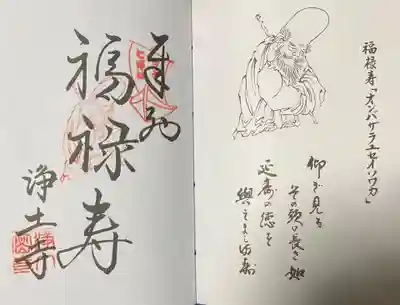 福禄寿「オンバザラユセイソワカ」
仰ぎ見る
その頭の長き如
延寿の徳を
與えまし
奉拝
福禄寿
浄土寺